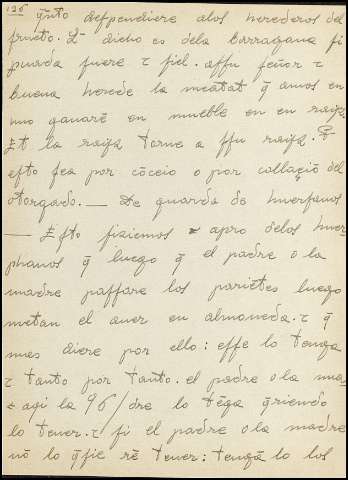 196 q̄nto defpendiere alos herederos del
fructo. Et dicho es dela barragana fi
puada fuere τ fiel. affu feñor τ
buena herede la meatat q̄ amos en
uno ganarē en mueble en en raiz.
Et la raiz torne a ffu raiz. Et
efto fea por cōceio o por collaçiō del
otorgado. — De guarda de huerfanos
— Efto fiziemos τ apro delos huer
phanos q̄ luego q̄ el padre o la
madre paffare los parietes luego
metan el auer en almoneda. τ q̄
mas diere por ello: effe lo tenga
τ tanto por tanto. el padre o la ma
τ aqi la 96/dre lo tēga q̄riendo
lo tener. τ fi el padre o la madre
nō lo q̄fie rē tener: tengā lo los